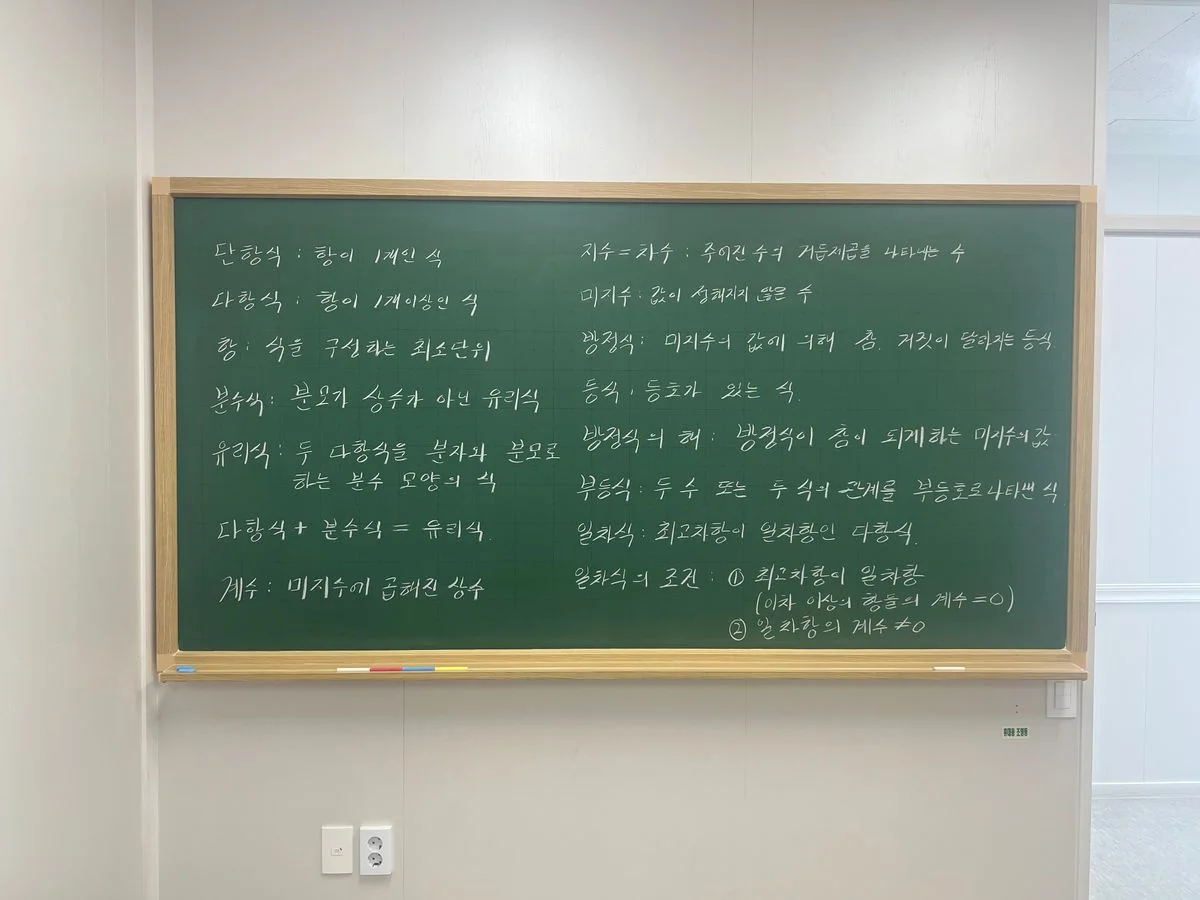 단항식 : 항이 1개인 식
다항식 : 항이 1개이상인 식
항 : 식을 구성하는 최소단위
분수식 : 분모가 상수가 아닌 유리식
유리식 : 두 다항식을 분자와 분모로
하는 분수 모양의 식
다항식 + 분수식 = 유리식.
계수 : 미지수에 곱해진 상수
지수 = 차수 : 주어진 수의 거듭제곱을 나타내는 수
미지수 : 값이 정해지지 않은 수
방정식 : 미지수의 값에 의해 참. 거짓이 달라지는 등식
등식 : 등호가 있는 식.
방정식의 해 : 방정식이 참이 되게하는 미지수의 값
부등식 : 두 수 또는 두 식의 관계를 부등호로 나타낸 식
일차식 : 최고차항이 일차항인 다항식.
일차식의 조건 : ① 최고차항이 일차항
(이차 이상의 항들의 계수 = 0)
② 일차항의 계수 ≠ 0